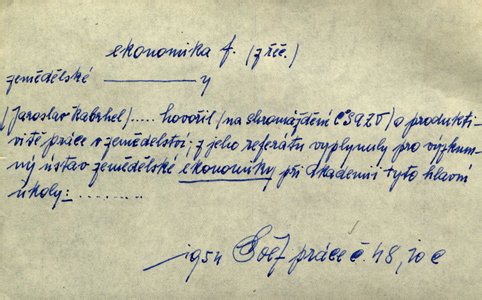 ekonomika f. (z řeč.)
zemědělské ———— y
(Jaroslav Kabrhel)..... hovořil (na shromáždění ČSAZV) o produkti-
vitě práce v zemědělství; z jeho referátu vyplynuly pro výzkum-
ný ústav zemědělské ekonomiky při Akademii tyto hlavní
úkoly: ........
1954 práce č. 48,